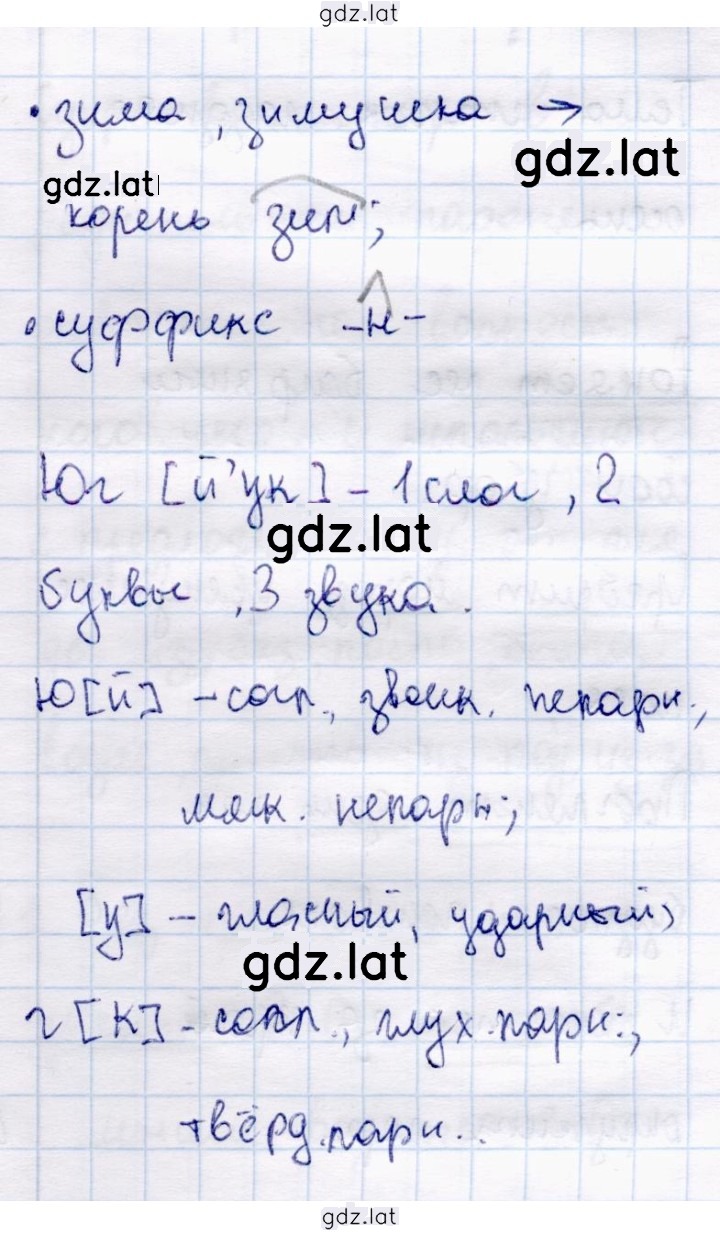 gdz.lat
• зима, зимушка →
gdz.lat
gdz.lat
корень зим;
• суффикс -н-
Юг [й'ук] - 1 слог, 2
gdz.lat
буквы, 3 звука.
Ю [й] - согл., звонк. непарн.,
мягк. непарн;
[у] - гласный, ударный,
gdz.lat
г [к] - согл., глух. парн.,
твёрд. парн..
gdz.lat